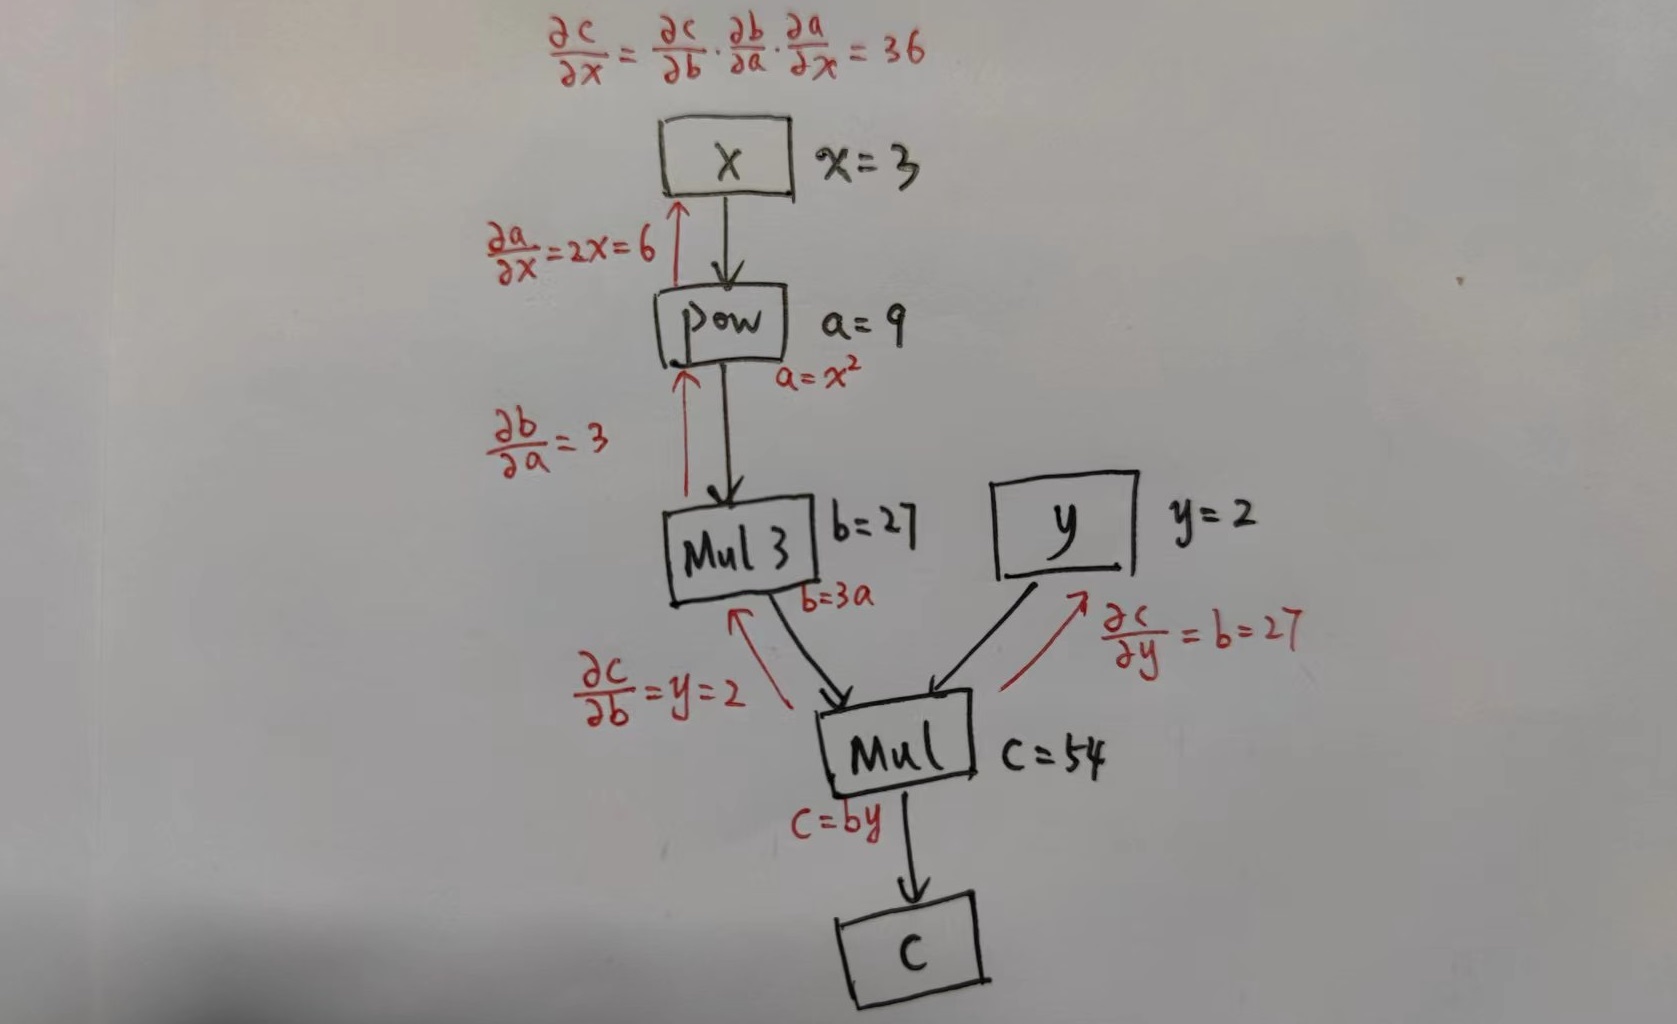 ∂c/∂x = ∂c/∂b · ∂b/∂a · ∂a/∂x = 36
x
x = 3
∂a/∂x = 2x = 6
pow
a = 9
a = x²
∂b/∂a = 3
Mul 3
b = 27
b=3a
y
y = 2
∂c/∂y = b = 27
∂c/∂b = y = 2
Mul
c = 54
c = by
c